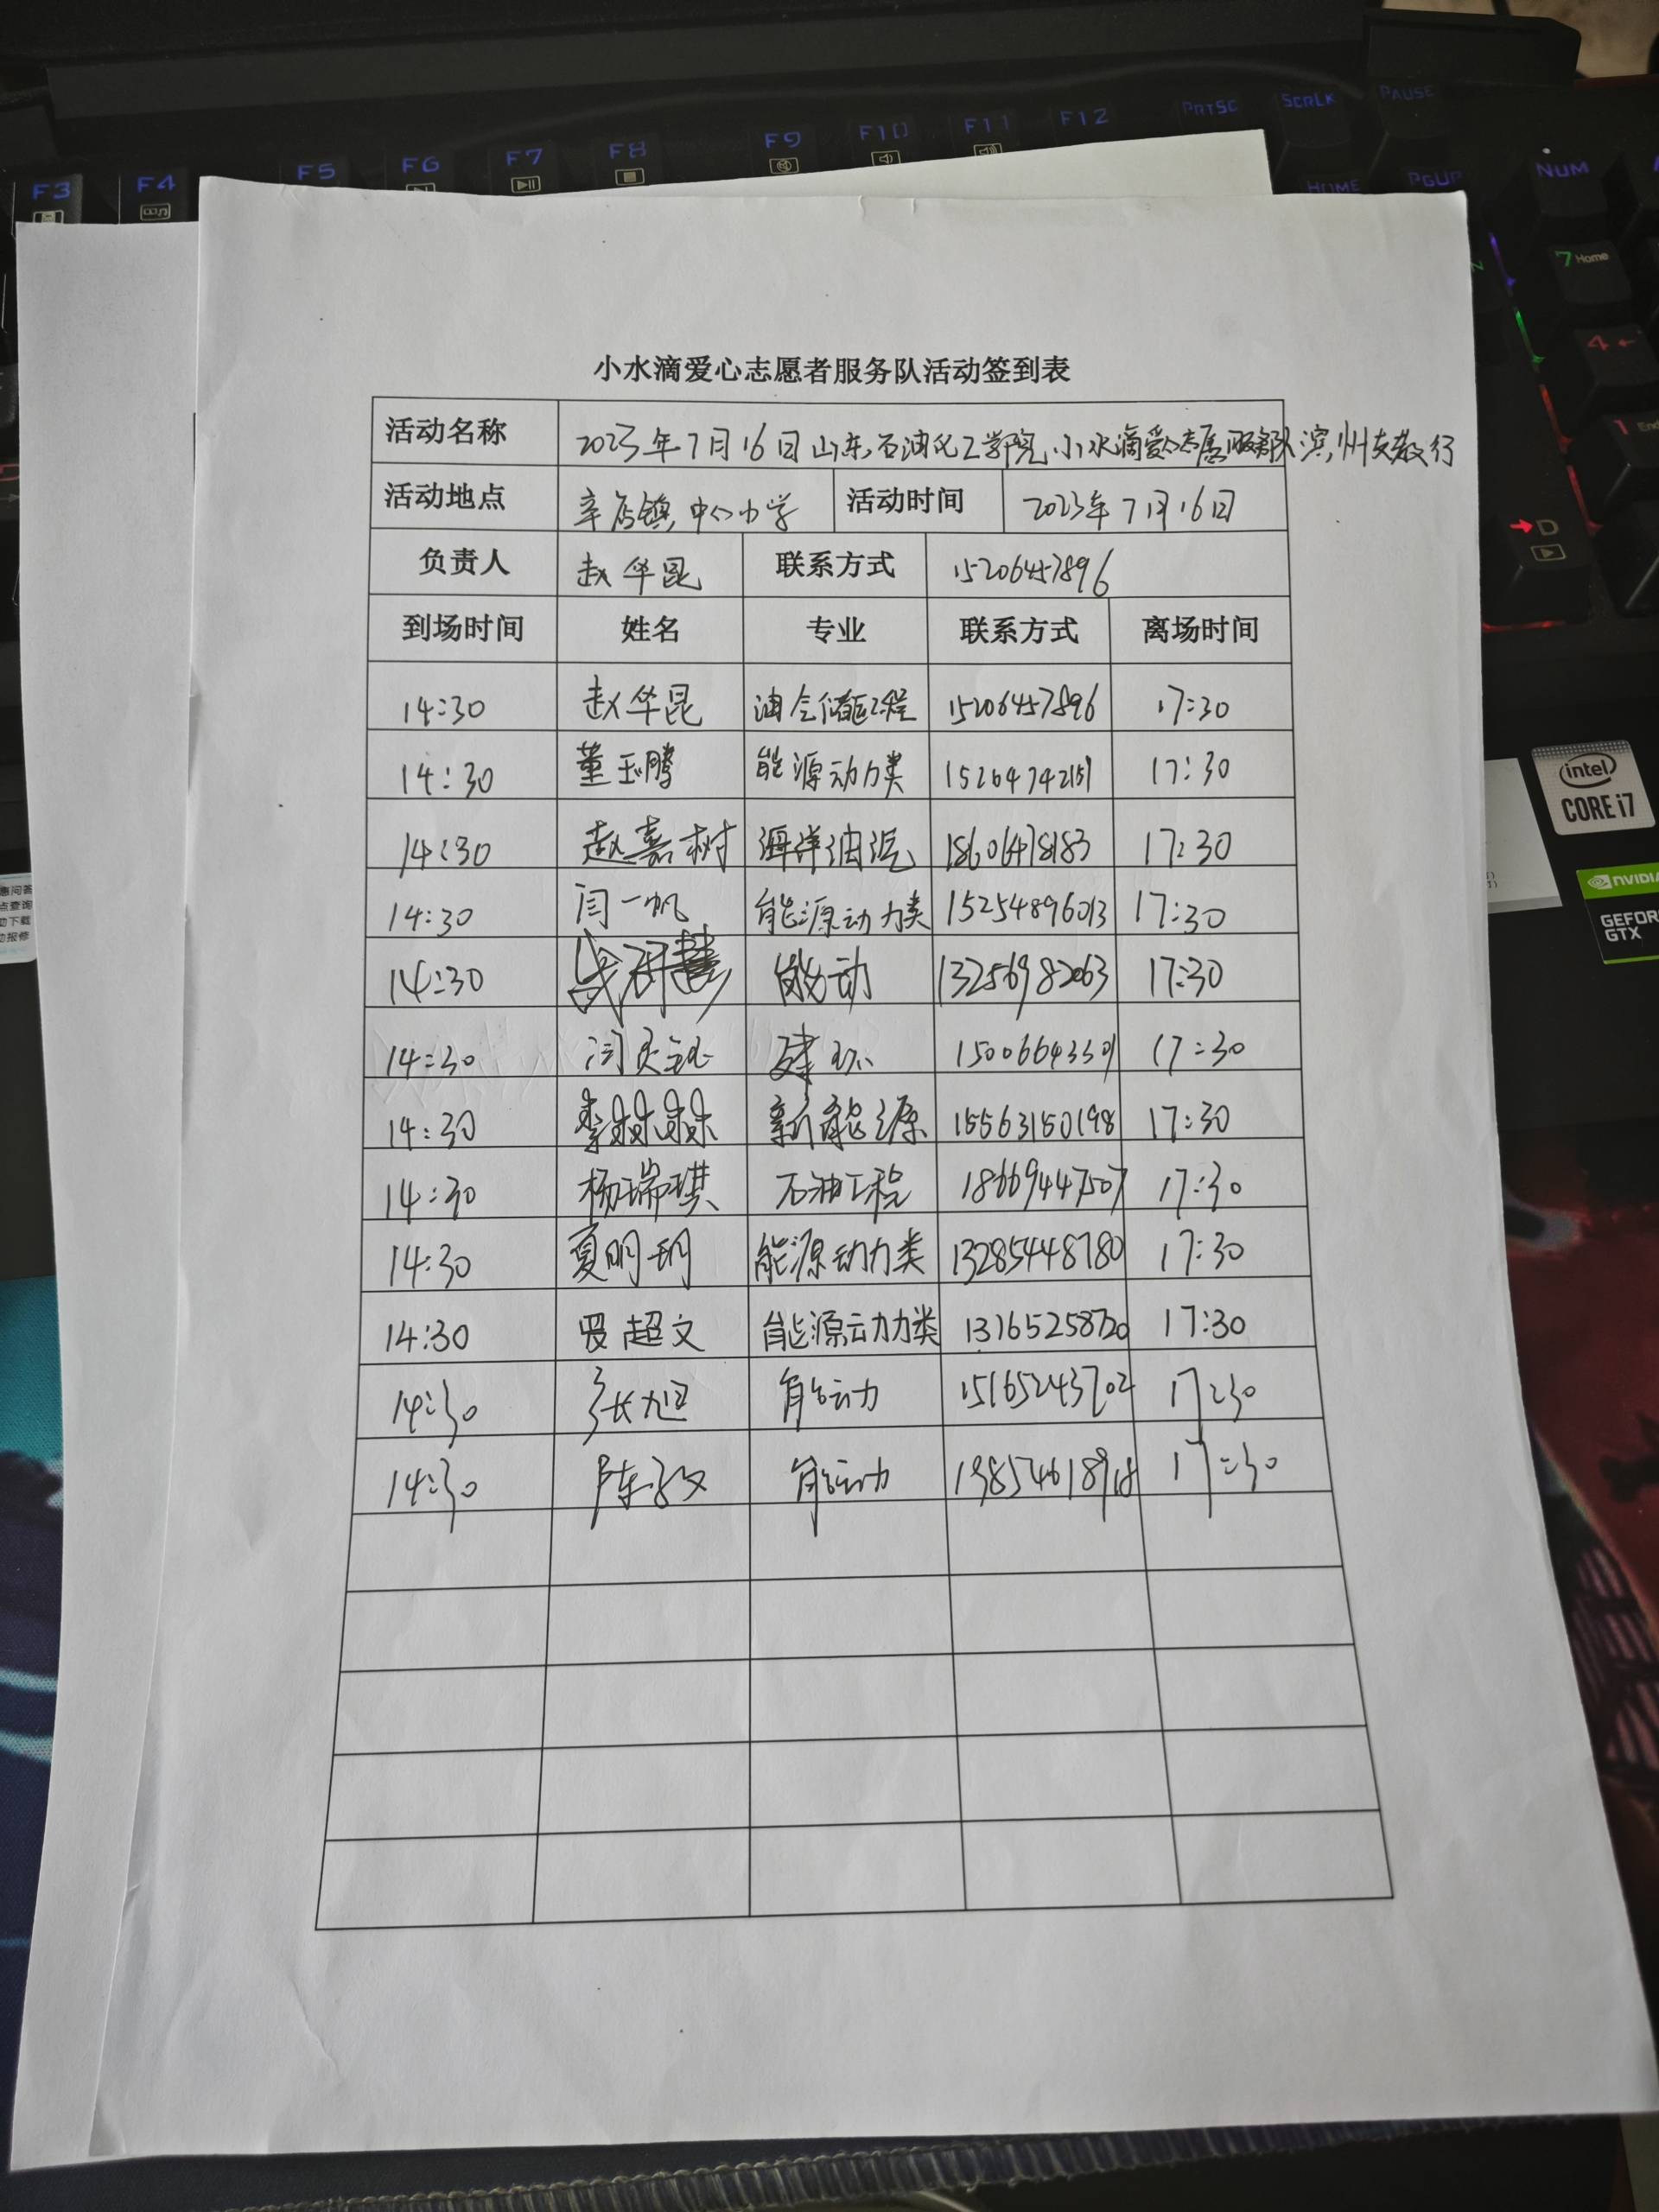 PRTSC SCRLK PAUSE
F3 F4 F5 F6 F7 F8 F9 F10 F11 F12
HOME PGUP NUM
7 Home
4
1 End
D
小水滴爱心志愿者服务队活动签到表
活动名称 2023年7月16日山东石油化工学院小水滴爱心志愿服务队滨州支教行
活动地点 辛店镇中心小学 活动时间 2023年7月16日
负责人 赵华昆 联系方式 15206457896
到场时间 姓名 专业 联系方式 离场时间
14:30 赵华昆 油气储运工程 15206457896 17:30
14:30 董玉腾 能源动力类 15264742151 17:30
14:30 赵嘉树 海洋油气 18606478183 17:30
14:30 闫一帆 能源动力类 15254896013 17:30
14:30 能动 13256982063 17:30
14:30 建环 15006643301 17:30
14:30 李姝姝 新能源 15563150198 17:30
14:30 杨瑞琪 石油工程 18669447507 17:30
14:30 夏明玥 能源动力类 13285448780 17:30
14:30 罗超文 能源动力类 13165258720 17:30
14:30 张旭 能动 15165243702 17:30
14:30 陈 能动 17:30
intel
CORE i7
NVIDIA
GEFOR
GTX